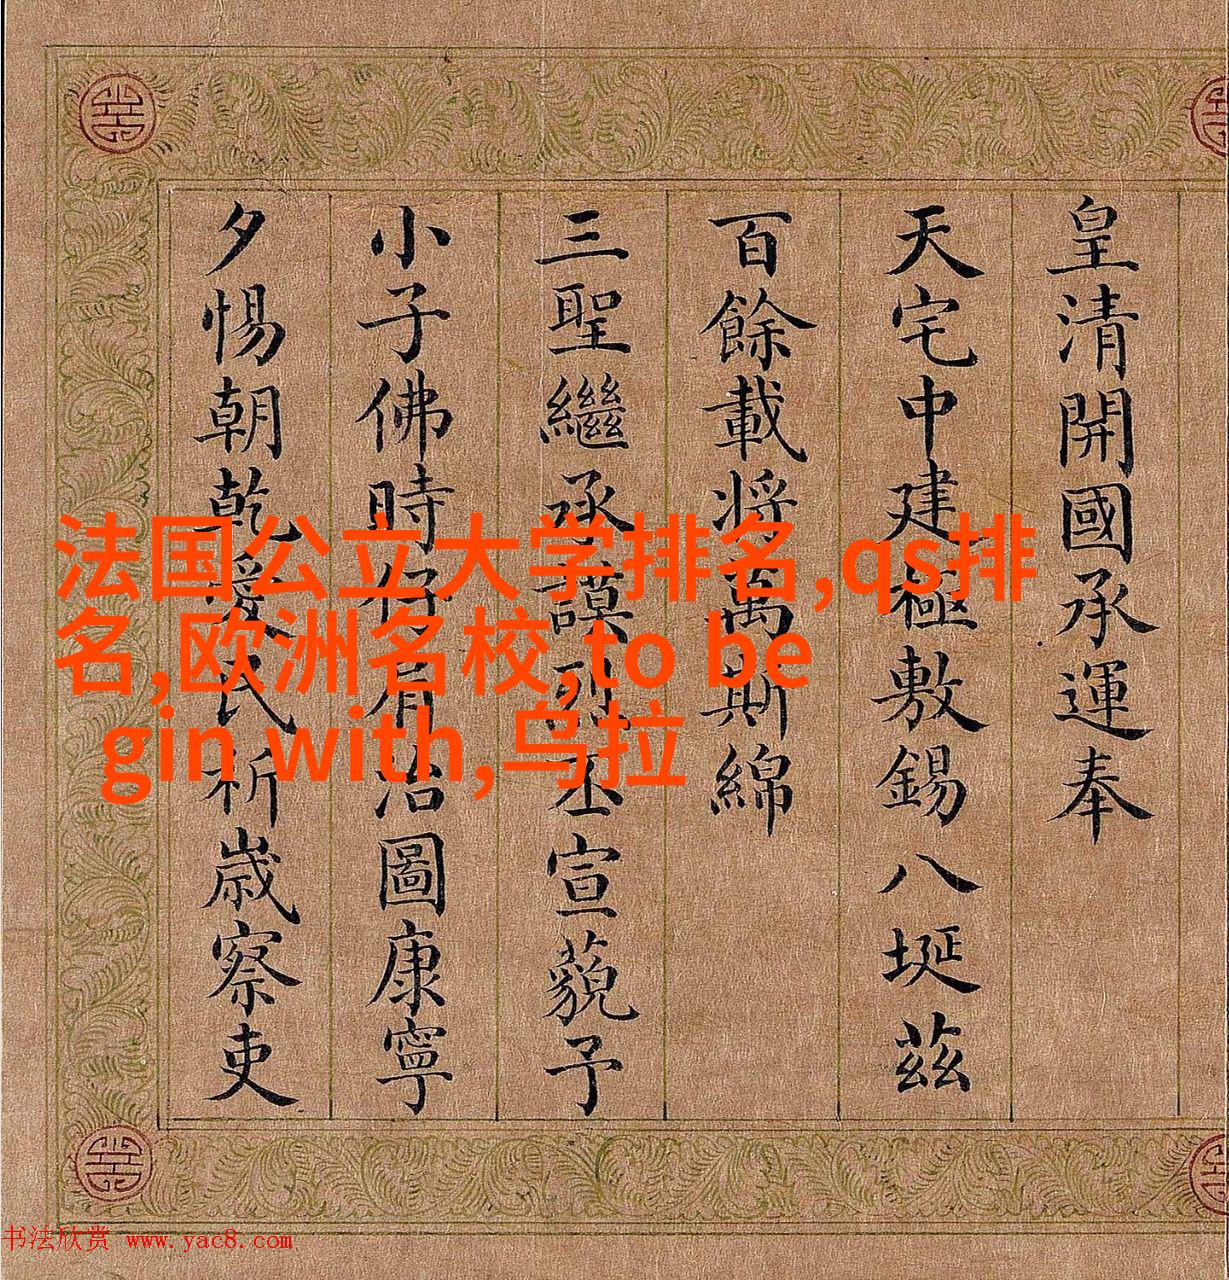 皇清開國承運奉
天宅中建極敷錫八埏茲
百餘載將萬斯綿
三聖繼承謨烈丕宣藐予
小子佛時仔肩治圖康寧
夕惕朝乾愛民祈歲察吏
法国公立大学排名,qs排
名,欧洲名校,to be
gin with,乌拉
书法欣赏 www.yac8.com